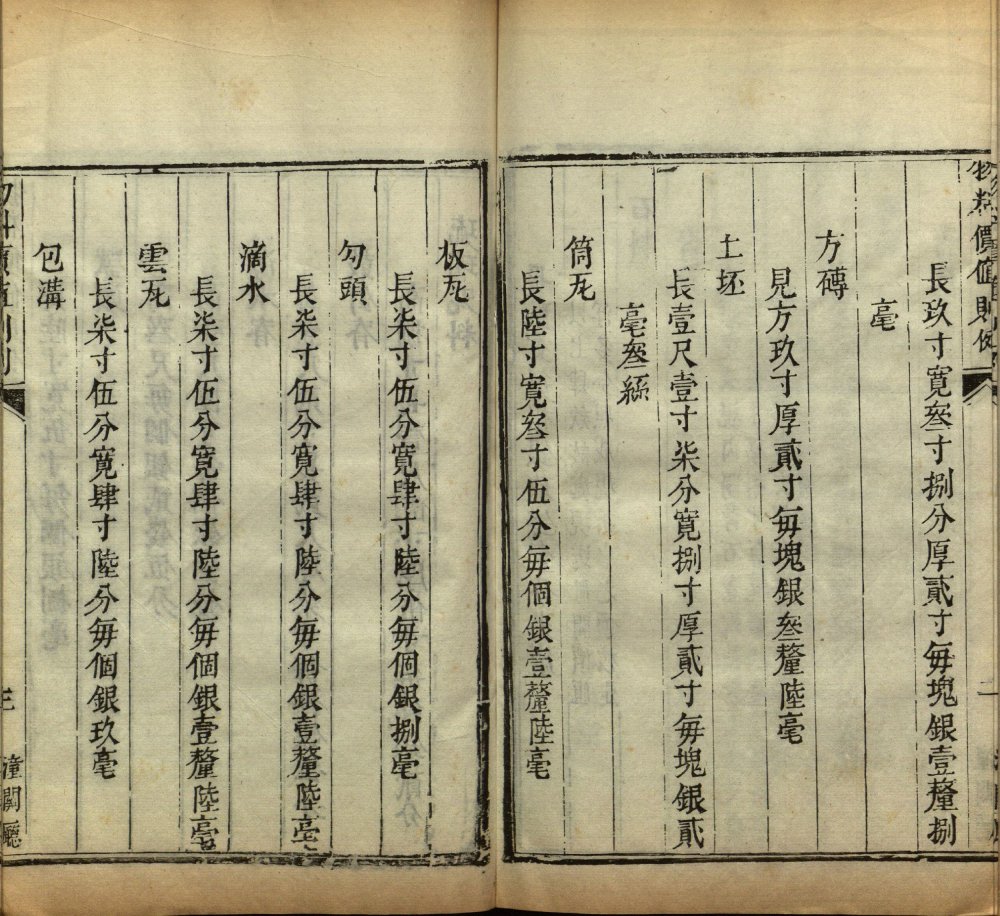 物料價值則例
長玖寸寬叁寸捌分厚貳寸毎塊銀壹釐捌
毫
方磚
見方玖寸厚貳寸毎塊銀叁釐陸毫
土坯
長壹尺壹寸柒分寬捌寸厚貳寸毎塊銀貳
毫叁絲
筒瓦
長陸寸寬叁寸伍分毎個銀壹釐陸毫
板瓦
長柒寸伍分寬肆寸陸分毎個銀捌毫
勾頭
長柒寸伍分寬肆寸陸分毎個銀壹釐陸毫
滴水
長柒寸伍分寬肆寸陸分毎個銀壹釐陸毫
雲瓦
長柒寸伍分寬肆寸陸分毎個銀玖毫
包溝
三
潼關廳